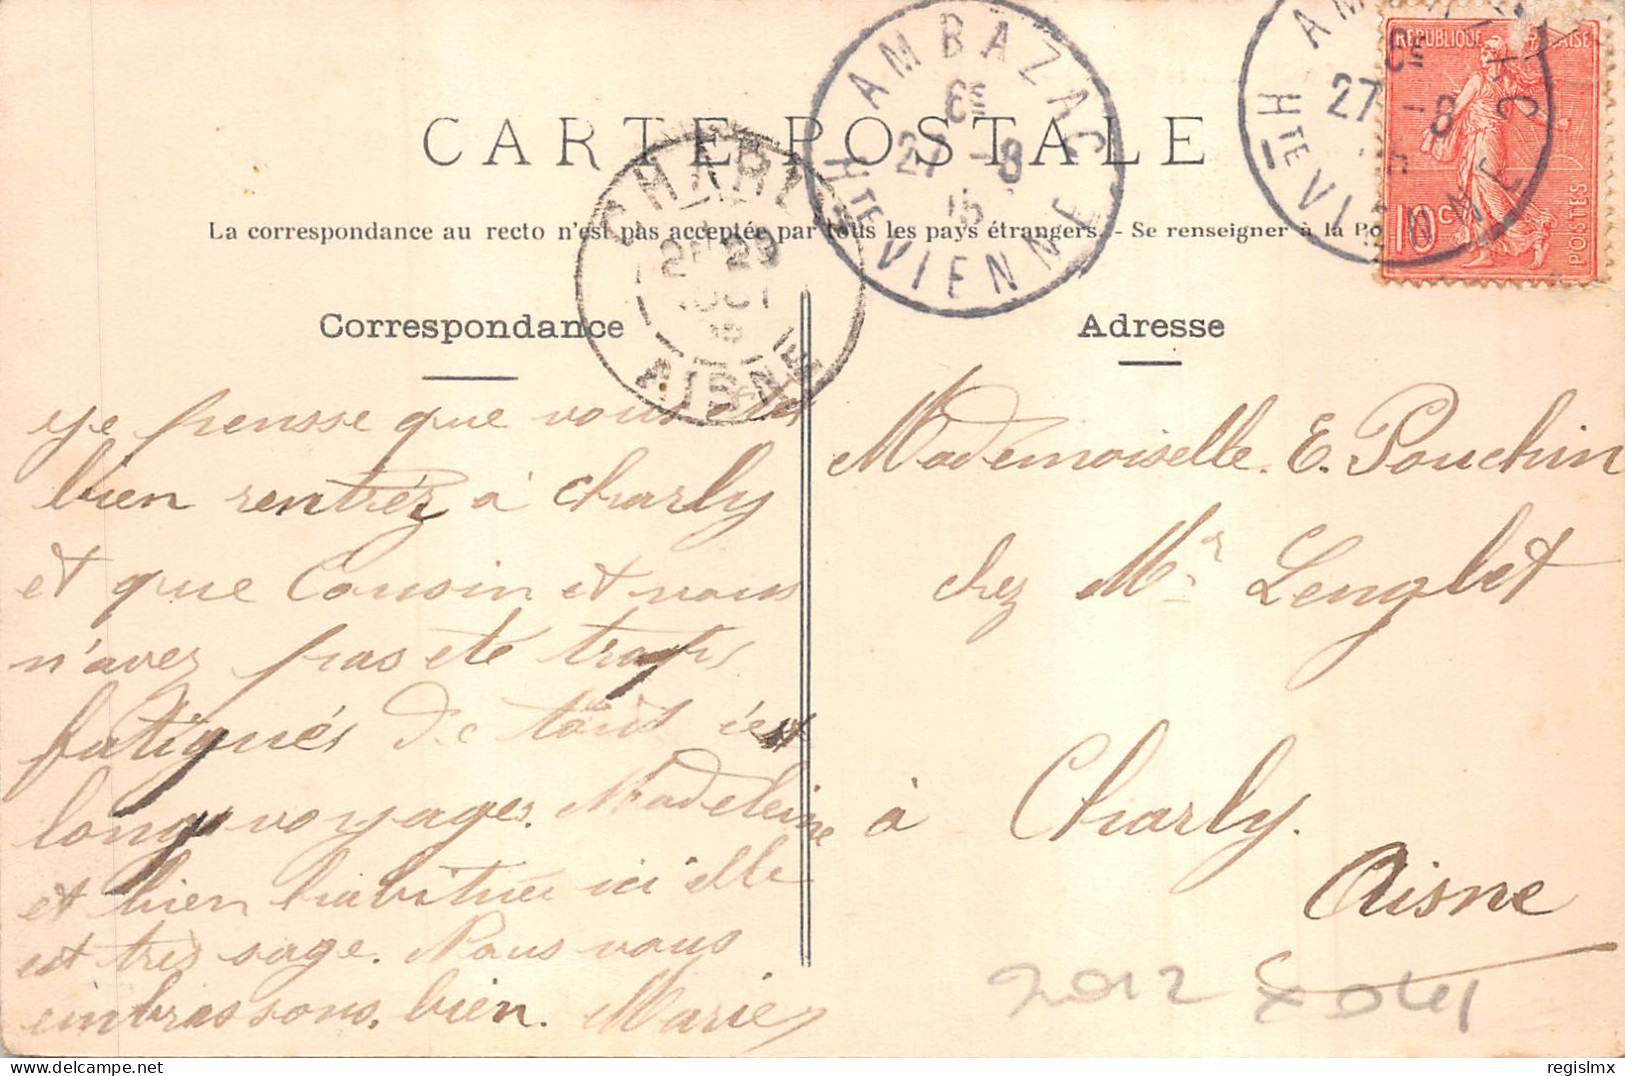 CARTE POSTALE
La correspondance au recto n'est pas acceptée par tous les pays étrangers. - Se renseigner à la Po
AMBAZAC
6E
27 -8
HTE VIENNE
AMBAZAC
6E
27 -8
HTE VIENNE
REPUBLIQUE FRANÇAISE
10c
POSTES
CHARLY
29
AISNE
Correspondance
ye pensse que vous
bien rentréz à Charly
et que Cousin et vous
n'avez pas eté trop
fatigués de tous
longs voyages. Madeleine
et bien habitué ici elle
est très sage. Nous vous
embrassons, bien. Marie
Adresse
Mademoiselle. E. Pouchin
chez Mr Lenglet
à Charly.
Aisne
2012
regislmx